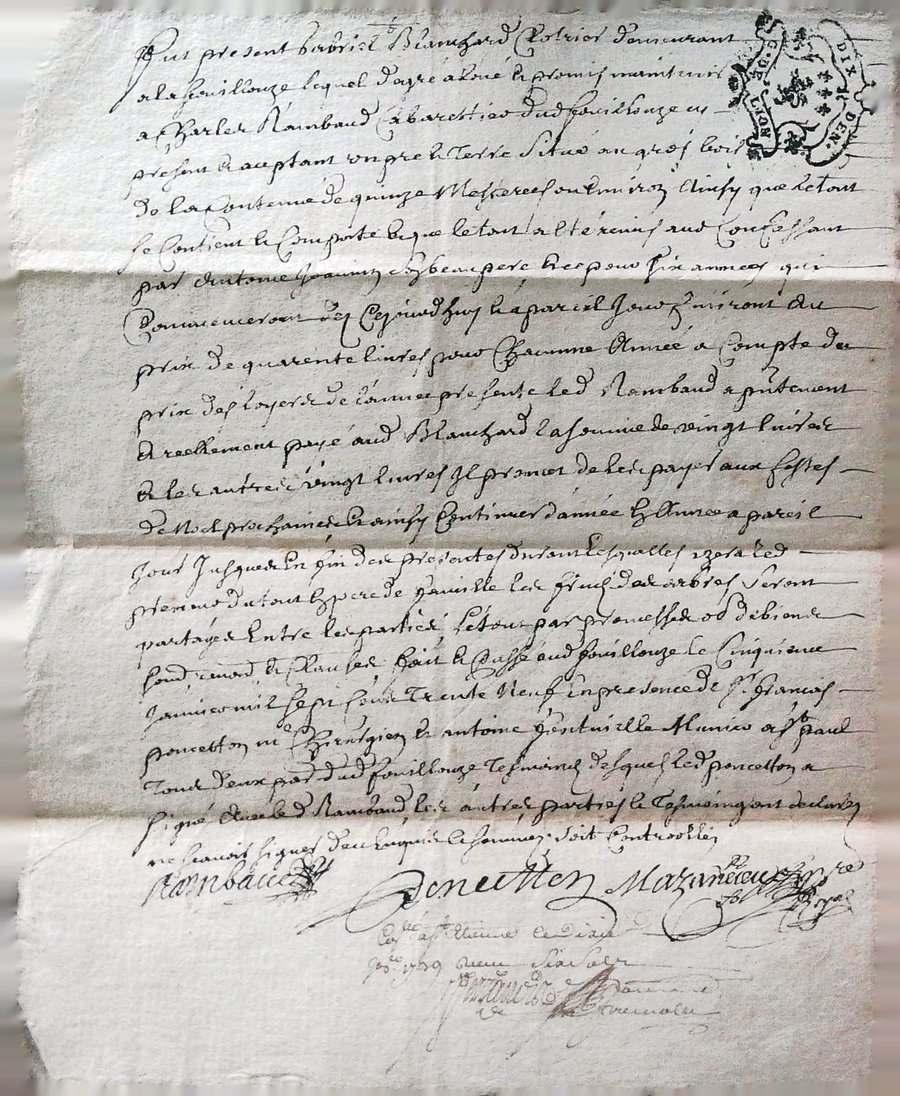 Fut present Gabriel Blanchard demeurant
a la fouillouze lequel dagré a loué & promis maintenir
a Charles Rambaud Cabarettier dud fouillouze icy
présent & aceptant un pré & Terre Situé au gros bois
de la Contenue de quinze Mesterees ou Environ Ainsy que le tout
se Contient & Comporte & que le tout a été
par Antoine son beau pere & ce pour six années qui
Commenceront dez Cejourdhuy & a pareil Jour finiront Au
prix de quarente livres pour Chacunne Année a Compte du
prix des loyers de l'année presente led Rambaud a pntement
& reellement payé aud Blanchard la somme de vingt livres
& les autres vingt livres Il promet de les payer aux festes
de Noel prochaines & ainsy Continuer d'année En Année a pareil
Jour Jusques En fin des presentes durant lesquelles led
preneur du tout En pere de famille les fruits des arbres seront
partagés Entre les parties, le tout par promesses ob de biens
soub. renon. & Clauses fait & Passé aud fouillouze le Cinquieme
Janvier mil sept Cents Trente Neuf En presence de Sr francois
poncetton me Chirurgien & antoine a St paul
Tous deux par dud fouillouze Tesmoins desquels led poncetton a
signé Avec led Rambaud, les autres parties & Tesmoing ont declaré
ne scavoir signer de ce Enquis & sommez soit Controollé
Rambaud Poncetton Mazenod Nre Royal
G. DE LION
DIX DEN.
Collé a St Etienne
1739